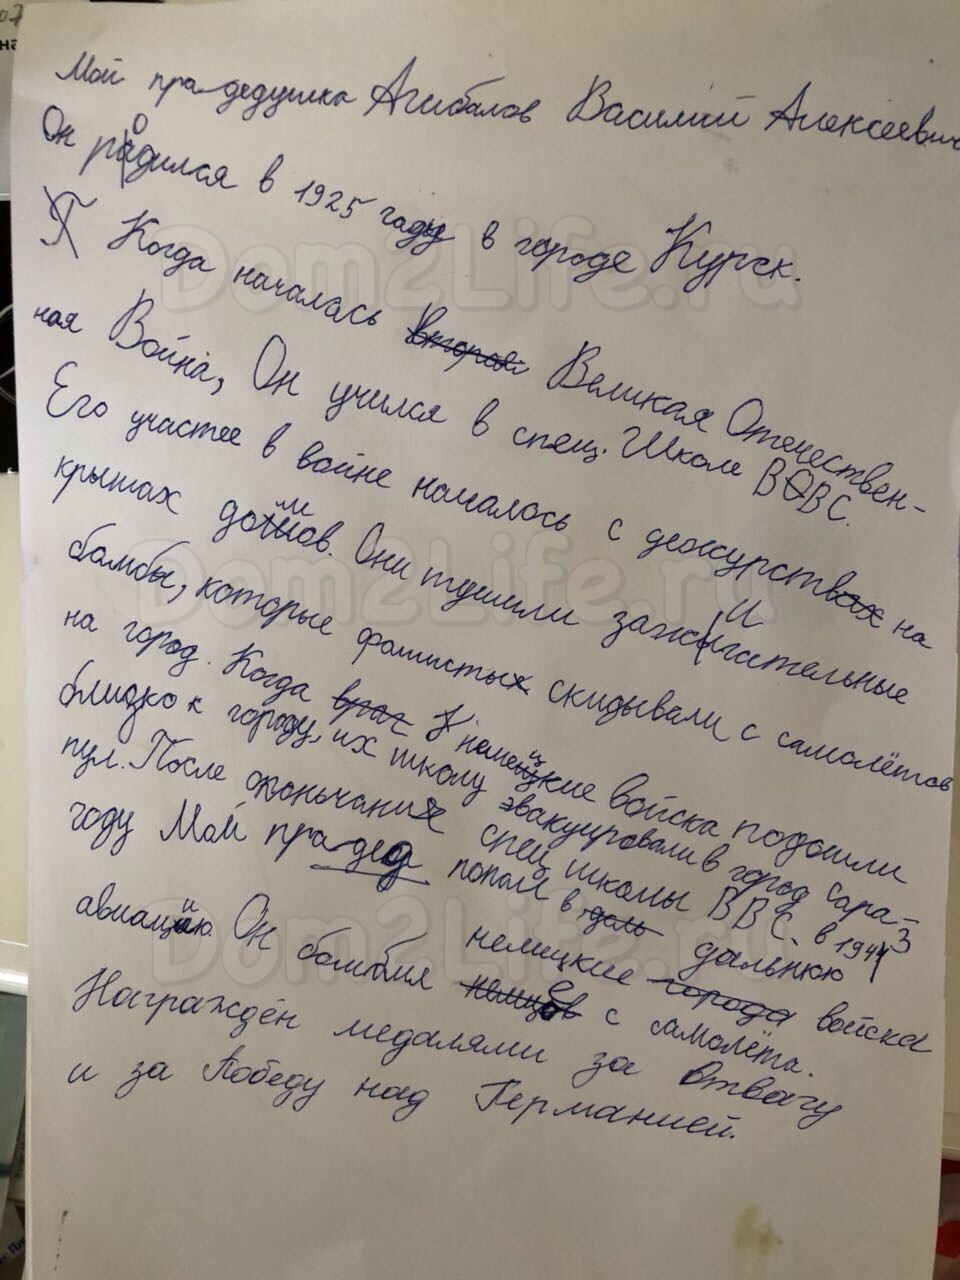 Мой прадедушка Агибалов Василий Алексеевич
Он родился в 1925 году в городе Курск.
Когда началась Великая Отечествен-
ная Война, Он учился в спец. Школе ВВС.
Его участее в войне началось с дежурств на
крышах домов. Они тушили зажигательные
бомбы, которые фашисты скидывали с самолётов
на город. Когда немецкие войска подошли
близко к городу, их школу эвакуировали в город Сара-
пул. После оконьчания спец школы ВВС в 1943
году Мой прадед попал в дальнюю
авиацию Он бомбил немицкие войска
с самолёта.
Награждён медалями за Отвагу
и за Победу над Германией.
Dom2Life.ru
Dom2Life.ru
Dom2Life.ru